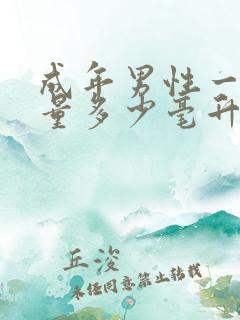 成年男性一
量多少毫升
丘浚
未经同意禁止转载